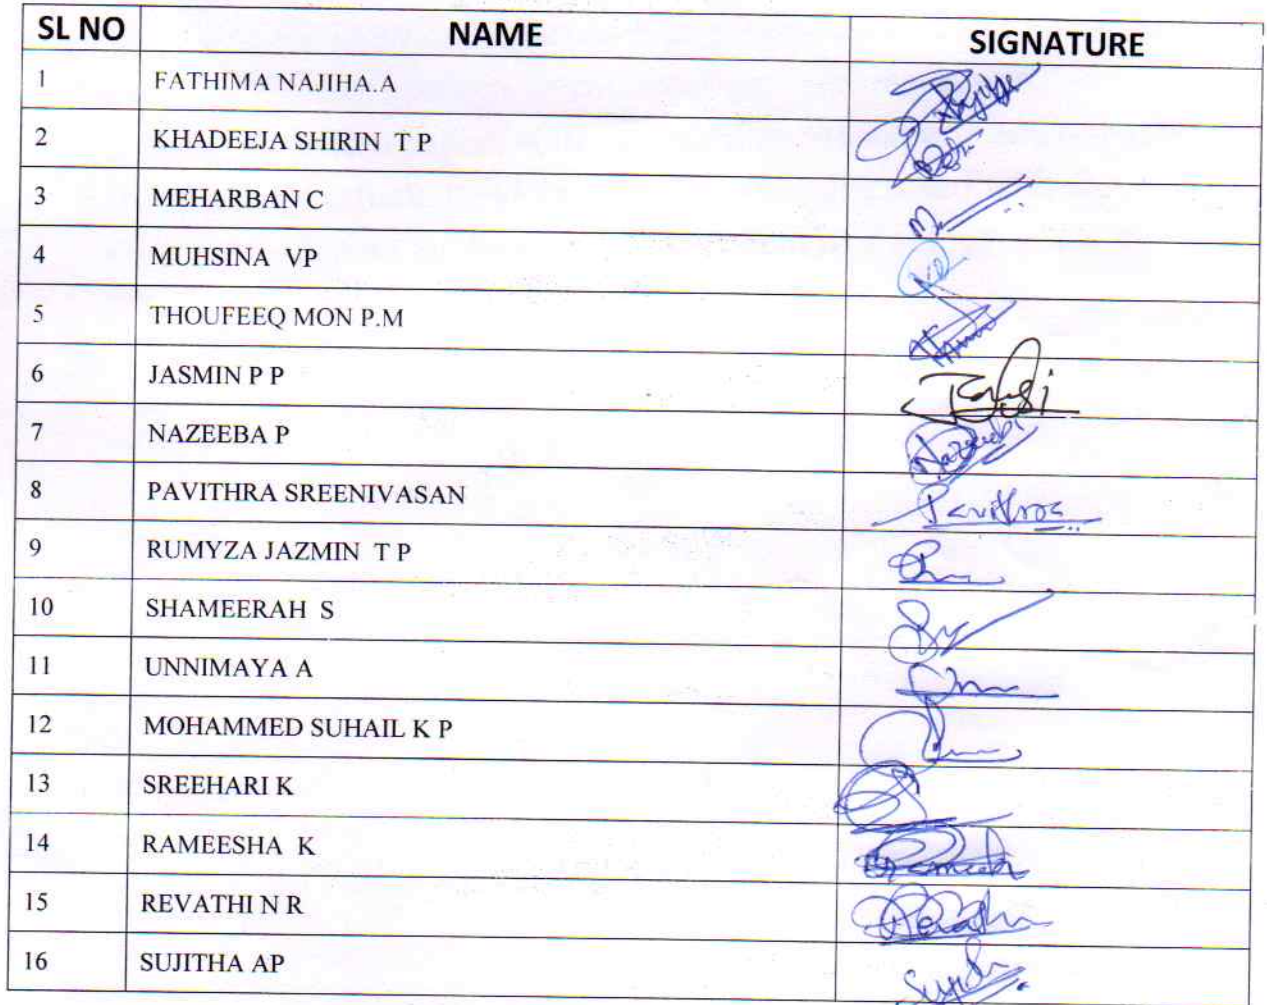 SL NO NAME SIGNATURE
1 FATHIMA NAJIHA.A
2 KHADEEJA SHIRIN T P
3 MEHARBAN C
4 MUHSINA VP
5 THOUFEEQ MON P.M
6 JASMIN P P
7 NAZEEBA P
8 PAVITHRA SREENIVASAN Pavithra
9 RUMYZA JAZMIN T P
10 SHAMEERAH S
11 UNNIMAYA A
12 MOHAMMED SUHAIL K P
13 SREEHARI K
14 RAMEESHA K
15 REVATHI N R
16 SUJITHA AP